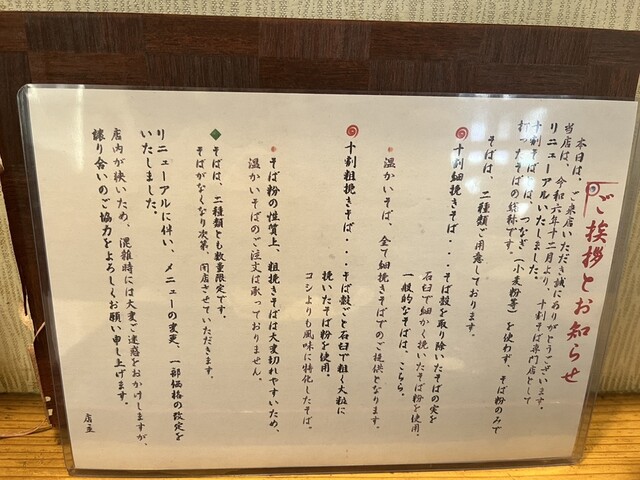 ご挨拶とお知らせ
本日は、ご来店いただき誠にありがとうございます。
当店は、令和六年十二月より、十割そば専門店として
リニューアルいたしました。
十割そばとは、つなぎ（小麦粉等）を使わず、そば粉のみで
打ったそばの総称です。
そばは、二種類ご用意しております。
十割細挽きそば・・・そば殻を取り除いたそばの実を
石臼で細かく挽いたそば粉を使用。
一般的なそばは、こちら。
温かいそば、全て細挽きそばでのご提供となります。
十割粗挽きそば・・・そば殻ごと石臼で粗く大粒に
挽いたそば粉を使用。
コシよりも風味に特化したそば。
そば粉の性質上、粗挽きそばは大変切れやすいため、
温かいそばのご注文は承っておりません。
そばは、二種類とも数量限定です。
そばがなくなり次第、閉店させていただきます。
リニューアルに伴い、メニューの変更、一部価格の改定を
いたしました。
店内が狭いため、混雑時には大変ご迷惑をおかけしますが、
譲り合いのご協力をよろしくお願い申し上げます。
店主